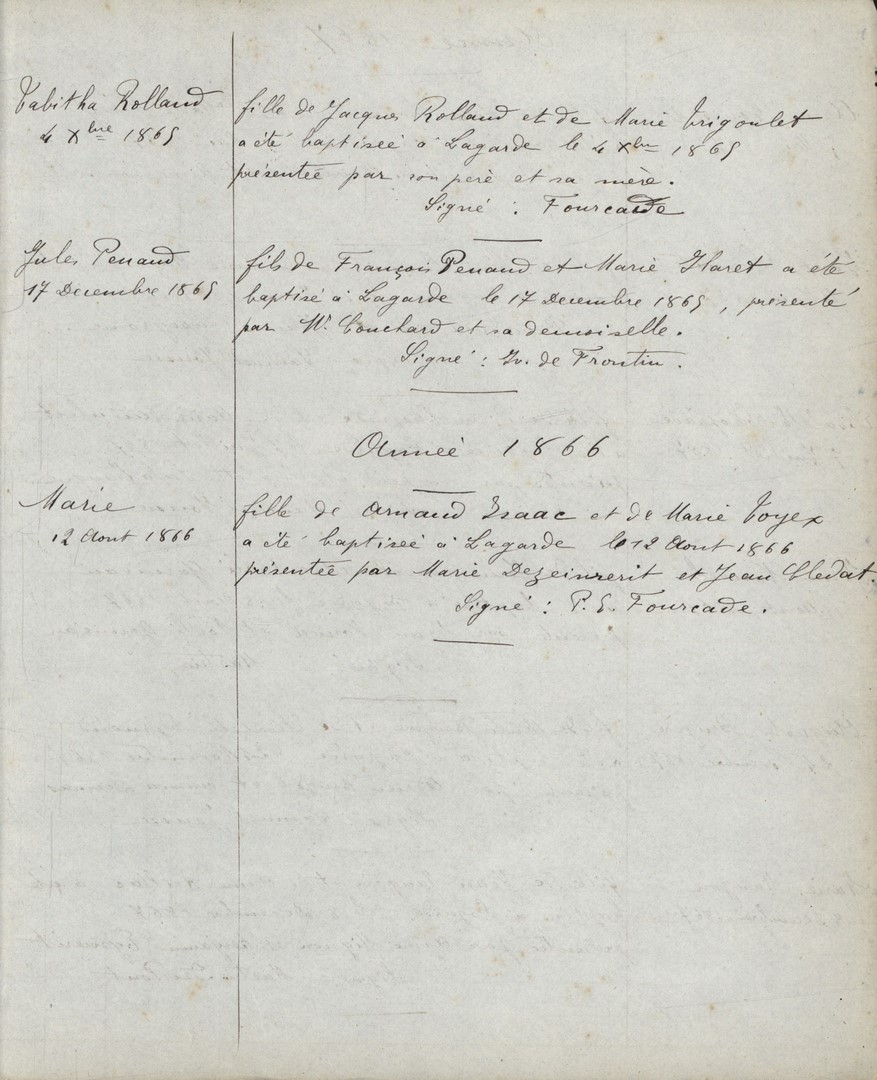 Tabitha Rolland
4 Xbre 1865
fille de Jacques Rolland et de Marie Trigoulet
a été baptiseé à Lagarde le 4 Xbre 1865
présenteé par son père et sa mère.
Signé : Fourcade
Jules Penaud
17 Decembre 1865
fils de François Penaud et Marie Haret a été
baptisé à Lagarde le 17 Decembre 1865, présenté
par Mr Couchard et sa demoiselle.
Signé : de Frontin.
Anneé 1866
Marie
12 Aout 1866
fille de Arnaud Isaac et de Marie Voyex
a été baptiseé à Lagarde le 12 Aout 1866
présenteé par Marie et Jean Cledat.
Signé : P. E. Fourcade.